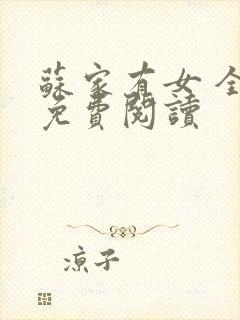 蘇家有女 全
免費閱讀
涼子